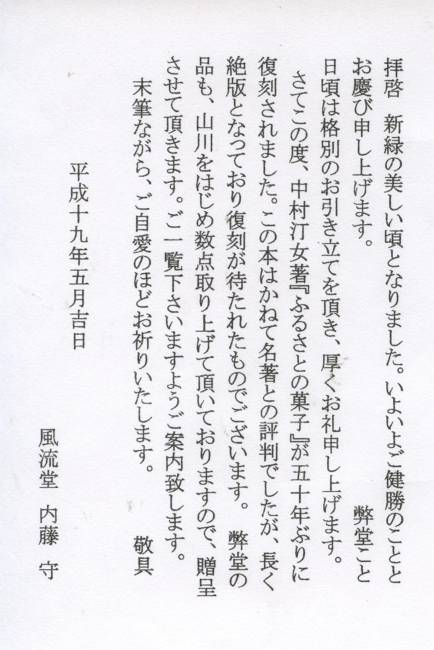 拝啓　新緑の美しい頃となりました。いよいよご健勝のことと
お慶び申し上げます。　　　　　　　　　　　　　弊堂こと
日頃は格別のお引き立てを頂き、厚くお礼申し上げます。
さてこの度、中村汀女著『ふるさとの菓子』が五十年ぶりに
復刻されました。この本はかねて名著との評判でしたが、長く
絶版となっており復刻が待たれたものでございます。　弊堂の
品も、山川をはじめ数点取り上げて頂いておりますので、贈呈
させて頂きます。ご一覧下さいますようご案内致します。
末筆ながら、ご自愛のほどお祈りいたします。　　　敬具
平成十九年五月吉日
風流堂　内藤　守